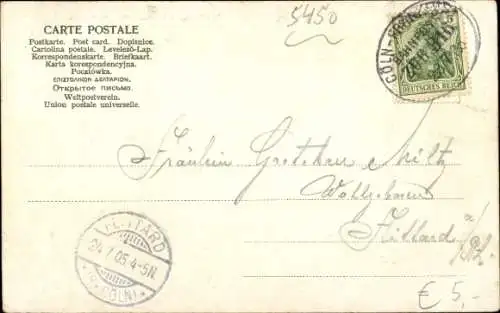 5450
CARTE POSTALE
Postkarte. Post card. Dopisnice.
Cartolina postale. Levelező-Lap.
Korrespondenskarte. Briefkaart.
Karta korespondencyjna.
Pocztówka.
ΕΠΙΣΤΟΛΙΚΟΝ ΔΕΛΤΑΡΙΟΝ.
Открытое письмо.
Weltpostverein.
Union postale universelle.
CÖLN-
5
DEUTSCHES REICH
Fräulein Gretchen
Wohlgeboren
FLITTARD
24.7.05.4-5N.
(CÖLN)
€ 5,-